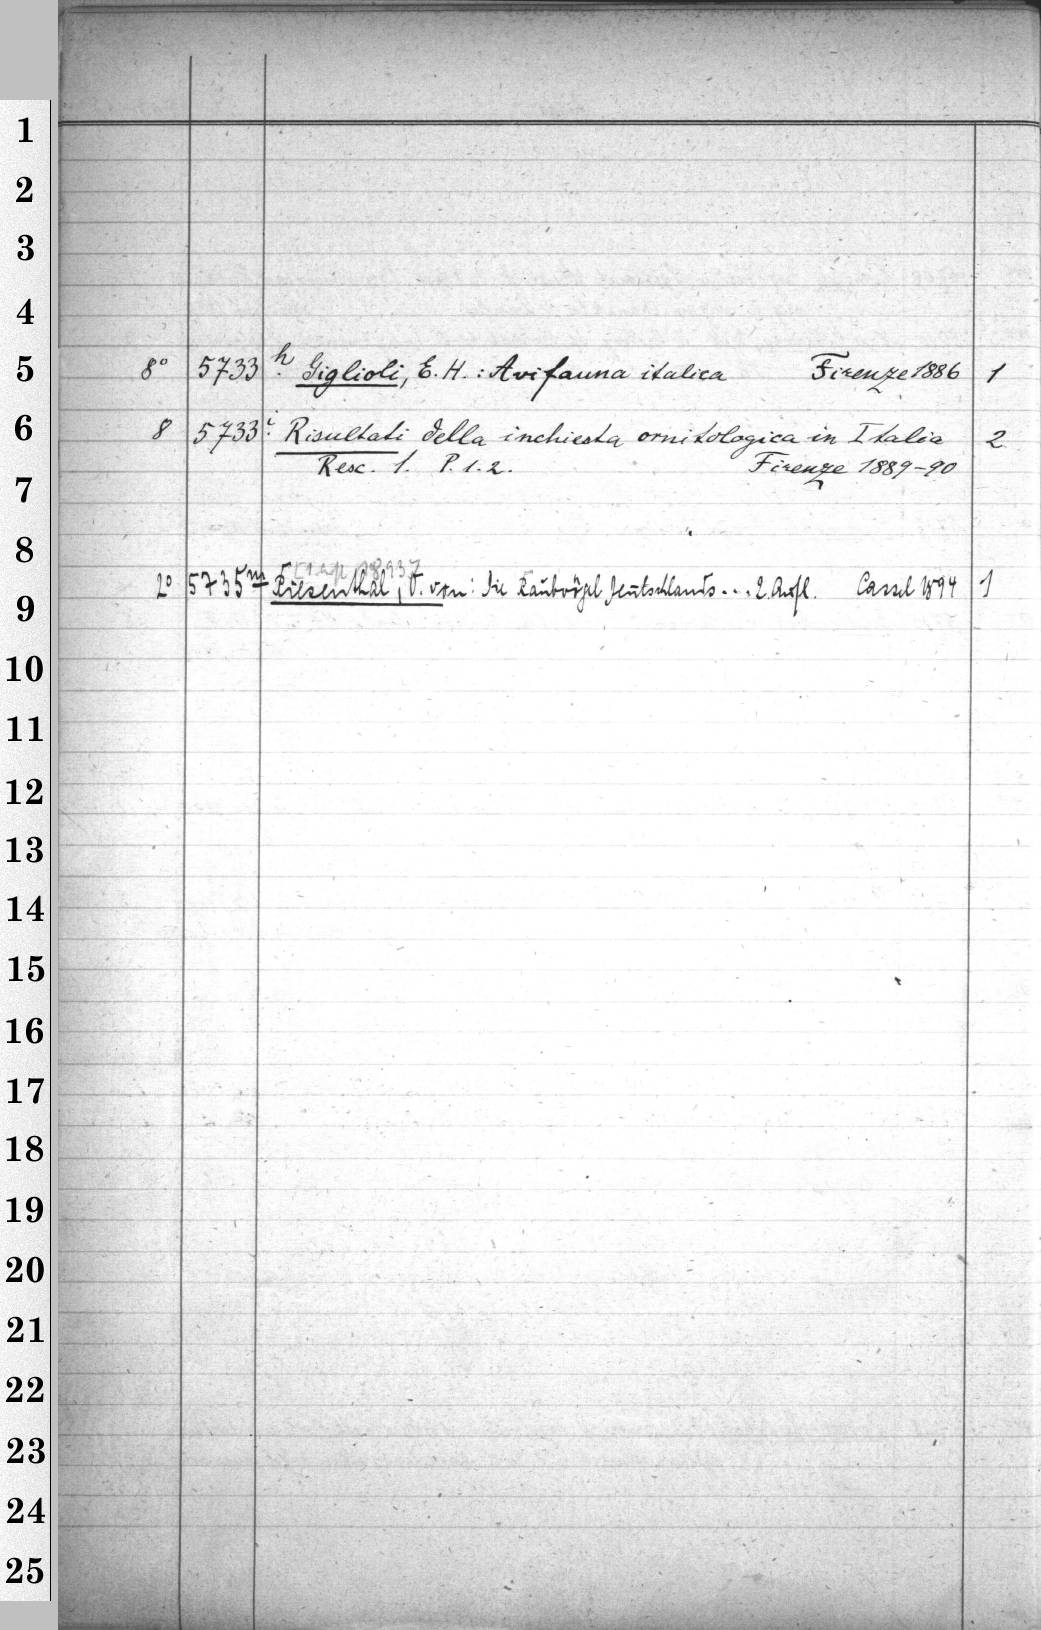 1
2
3
4
5 8° 5733 h. Giglioli, E. H.: Avifauna italica Firenze 1886 1
6 8 5733 i. Risultati della inchiesta ornitologica in Italia 2
Resc. 1. P. 1. 2. Firenze 1889-90
7
8
9 2° 5735 m Riesenthal, O. von: Die Raubvögel Deutschlands... 2. Aufl. Cassel 1894 1
10
11
12
13
14
15
16
17
18
19
20
21
22
23
24
25